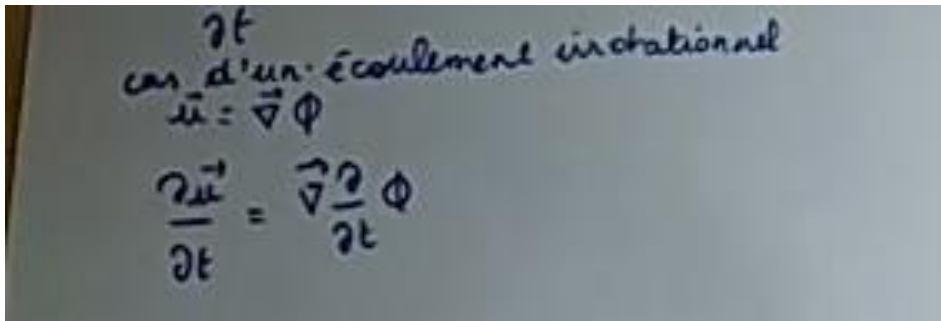 ∂t
cas d'un écoulement irrotationnel
u⃗ = ∇⃗ Φ
∂u⃗/∂t = ∇⃗ ∂/∂t Φ